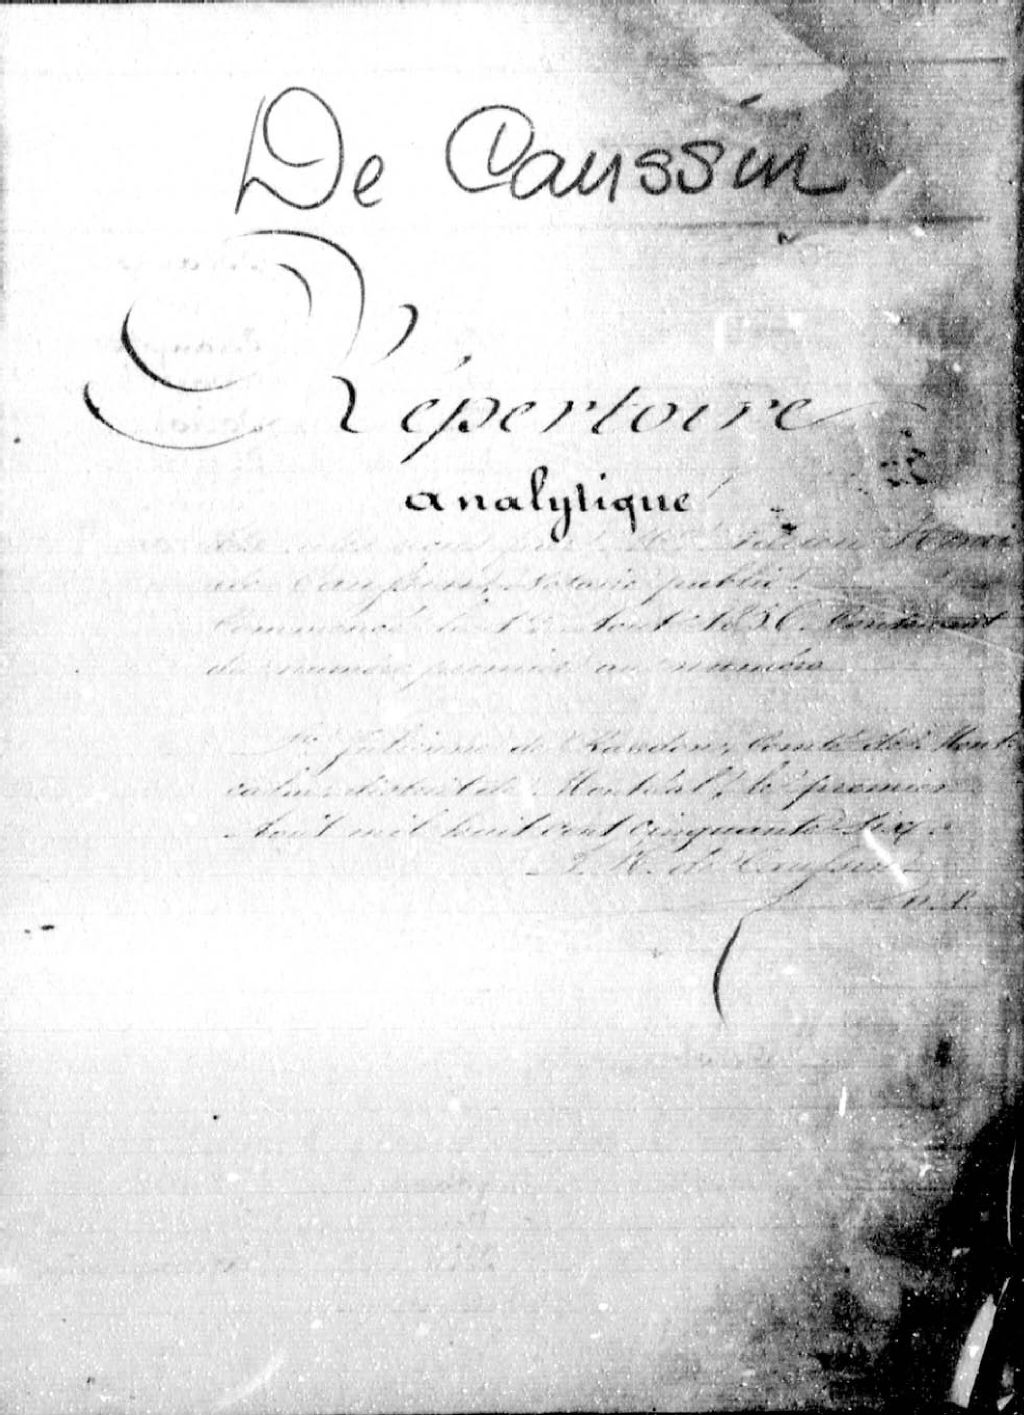 De Caussin
Répertoire
analytique
des actes reçus par Mtre
de Caussin, Notaire public
Commencé le 1er Aout 1856. Contenant
du numéro premier au numéro
Ste Julienne de Rawdon, Comté de Mont
calm district de Montréal, le premier
Août mil huit cent cinquante six.
H. de Caussin
N. P.